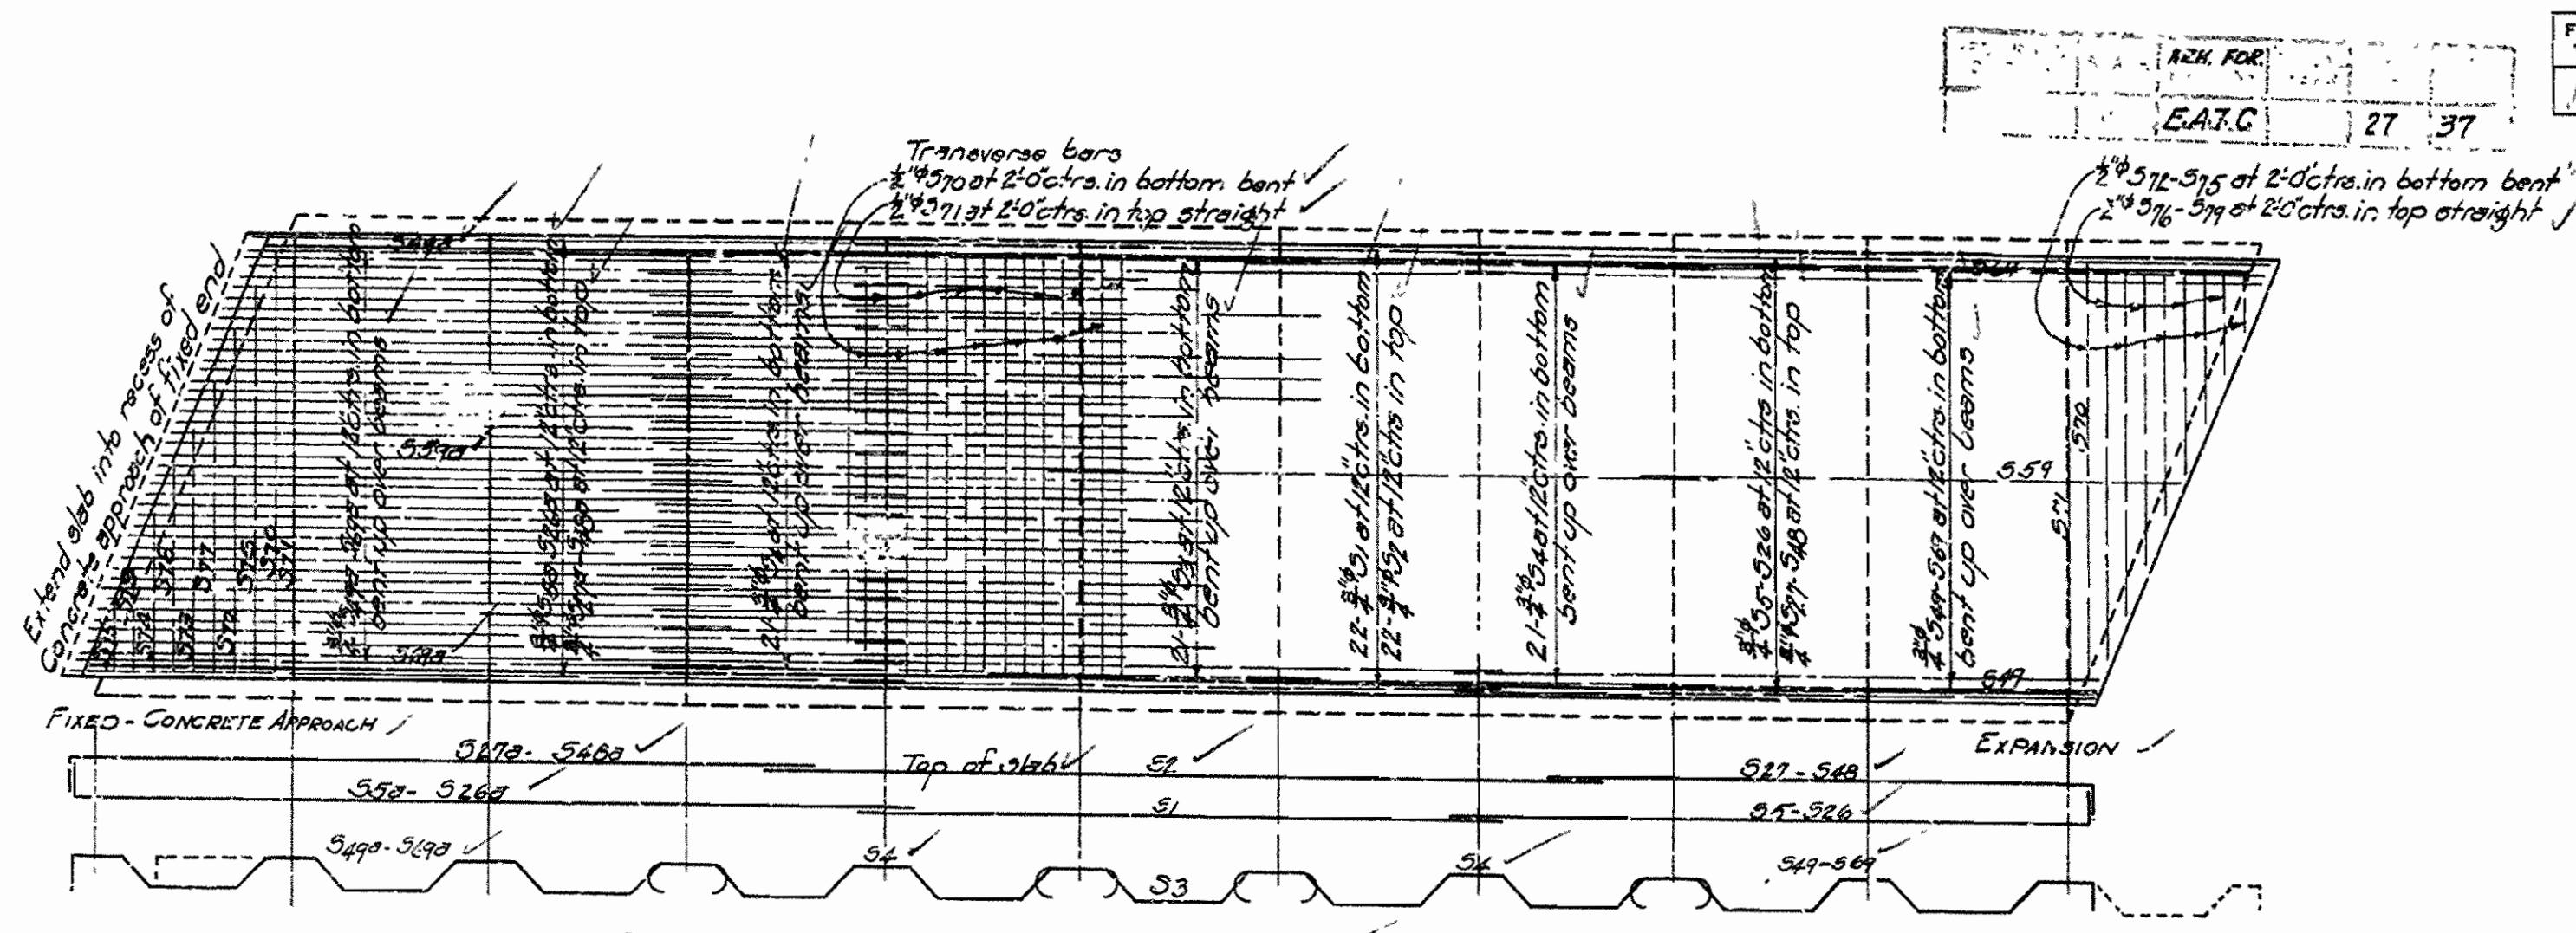 ARK. FOR.
E.A.T.C 27 37
Transverse bars
½"φ S70 at 2'-0" ctrs. in bottom bent
½"φ S71 at 2'-0" ctrs. in top straight
½"φ S72-S75 at 2'-0" ctrs. in bottom bent
½"φ S76-S79 at 2'-0" ctrs. in top straight
Extend slab into recess of
Concrete approach of fixed end
S78
S77
S74
S73
S72
S75
S70
S71
at 12" ctrs. in bottom
bent up over beams
S59a
S69a
at 12" ctrs. in bottom
at 12" ctrs. in top
21-¾"φ S4 at 12" ctrs. in bottom
bent up over beams
21-¾"φ S3 at 12" ctrs. in bottom
bent up over beams
22-¾"φ S1 at 12" ctrs. in bottom
22-¾"φ S2 at 12" ctrs. in top
21-¾"φ S4 at 12" ctrs. in bottom
bent up over beams
¾"φ S5-S26 at 12" ctrs. in bottom
¾"φ S27-S48 at 12" ctrs. in top
¾"φ S49-S69 at 12" ctrs. in bottom
bent up over beams
S59
S70
S71
S49
FIXED - CONCRETE APPROACH
EXPANSION
S27a - S48a
Top of slab
S2
S27 - S48
S5a - S26a
S1
S5-S26
S49a-S69a
S4
S3
S4
S49-S69